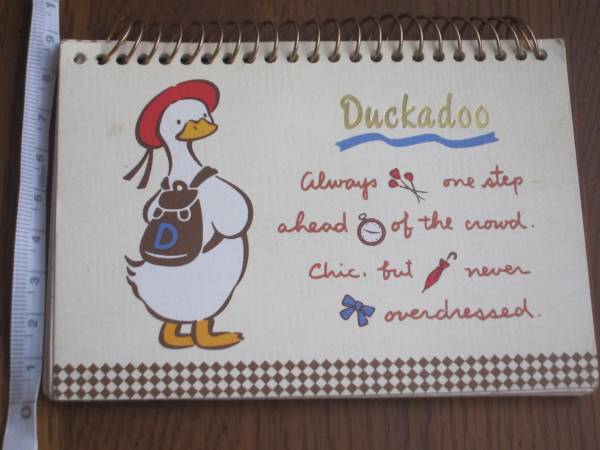 Duckadoo
Always one step
ahead of the crowd.
Chic, but never
overdressed.
D
0
1
2
3
4
5
6
7
8
9